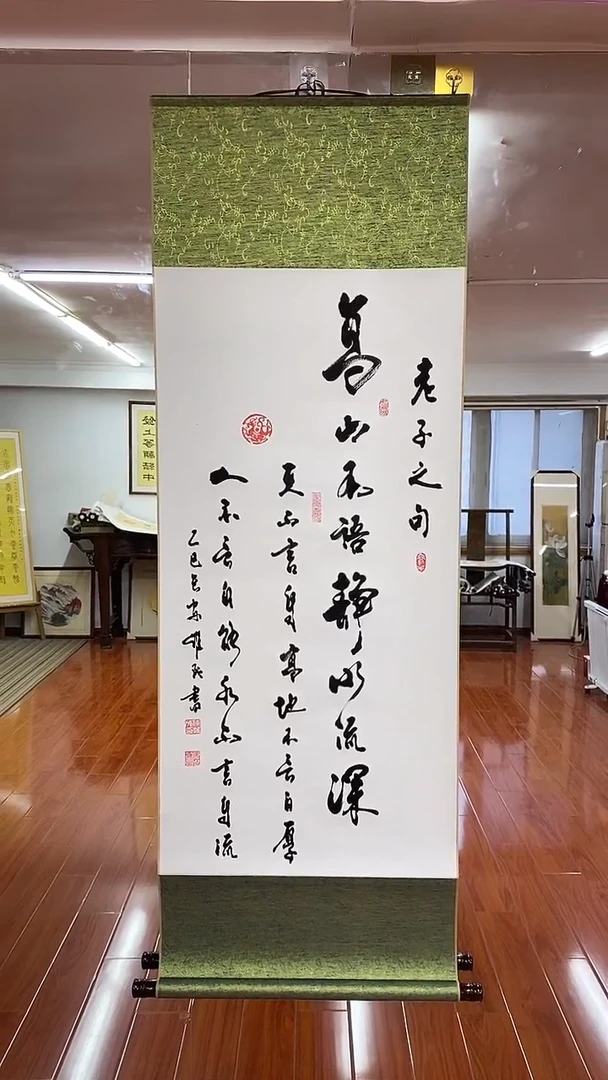 老子之句
高山不语静水流深
天不言自高地不言自厚
人不言自能水不言自流
乙巳长安
书